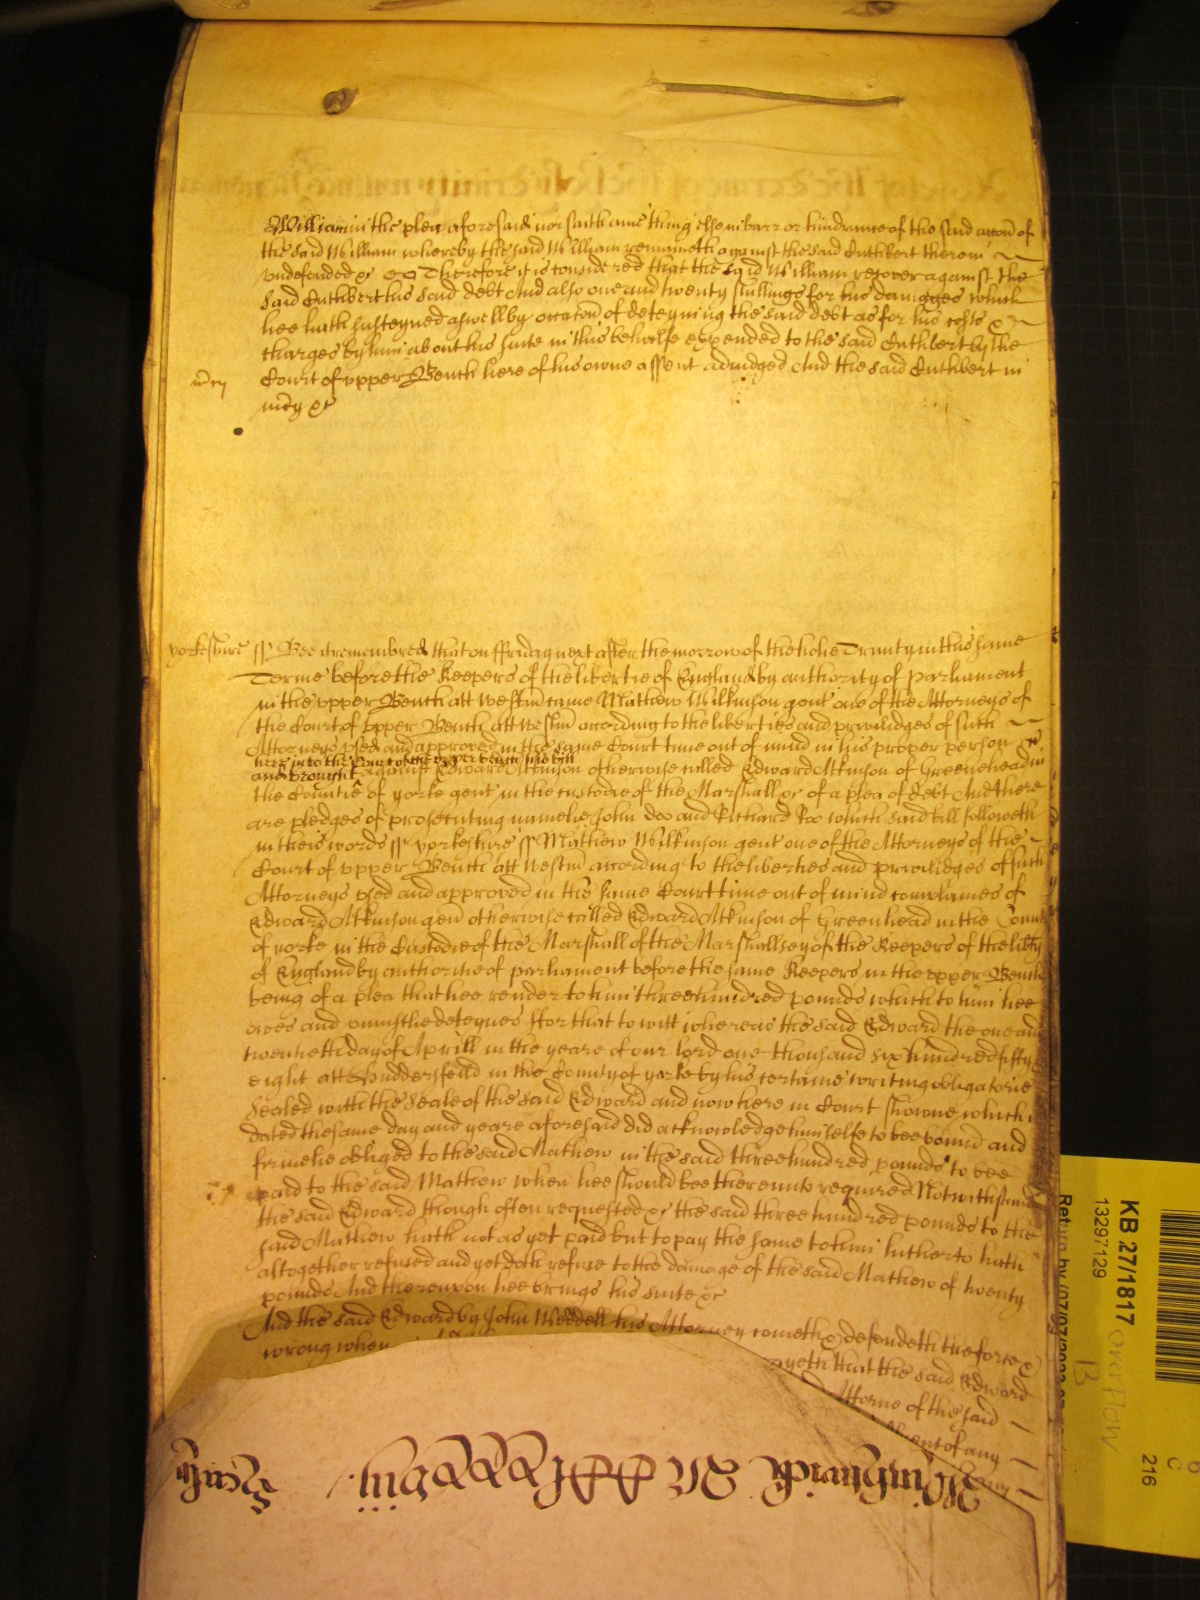 William in the plea aforesaid nor saith anie thing else in barr or hindrance of the said accon of
the said William whereby the said William remaineth against the said Cuthbert therein
undefended &c Therefore it is considered that the said William recover against the
said Cuthbert his said debt And also one and twenty shillings for his damages which
hee hath susteyned aswell by occacon of deteyning the said debt as for his costs &
charges by him about his suite in this behalfe expended to the said Cuthbert by the
Court of upper Bench here of his owne assent adiudged And the said Cuthbert in
mcy &c
yorkeshire ss Bee it remembred that on ffriday next after the morrow of the holie Trinity in this same
Terme before the Keepers of the libertie of England by authority of parliament
in the upper Bench att Westm came Mathew Wilkinson gent one of the Attorneys of
the Court of upper Bench att Westm according to the liberties and priviledges of such
Attorneys used and approved in the same Court time out of mind in his proper person
here into the Court of the upper bench his bill
and brought against Edward Atkinson otherwise called Edward Atkinson of Greenehead in
the Countie of yorke gent in the custodie of the Marshall &c of a plea of debt And there
are pledges of prosecuting namelie John doo and Richard Roo which said bill followeth
in theis words ss yorkeshire ss Mathew Wilkinson gent one of the Attorneys of the
Court of upper Bench att Westm according to the liberties and priviledges of such
Attorneys used and approved in the same Court time out of mind complaines of
Edward Atkinson gen otherwise called Edward Atkinson of Greenhead in the County
of yorke in the Custodie of the Marshall of the Marshallsey of the Keepers of the libty
of England by authoritie of parliament before the same Keepers in the upper Bench
being of a plea that hee render to him three hundred pounds which to him hee
owes and uniustlie deteynes ffor that to witt whereas the said Edward the one and
twentieth day of Aprill in the yeare of our lord one thousand six hundred fifty
eight att Huddersfeild in the County of yorke by his certaine writing obligatorie
sealed with the seale of the said Edward and now here in Court showne which is
dated the same day and yeare aforesaid did acknowledge himselfe to bee bound and
firmelie obliged to the said Mathew in the said three hundred pounds to bee
paid to the said Mathew when hee should bee thereunto required Notwithstanding
the said Edward though often requested &c the said three hundred pounds to the
said Mathew hath not as yet paid but to pay the same to him hitherto hath
altogether refused and yet doth refuse to the damage of the said Mathew of twenty
pounds And thereupon hee brings his suite &c
And the said Edward by John Weddell his Attorney cometh & defendeth the force &
wrong when
that the said Edward
Attorne of the said
of any
KB 27/1817
13297129
overflow
B
216